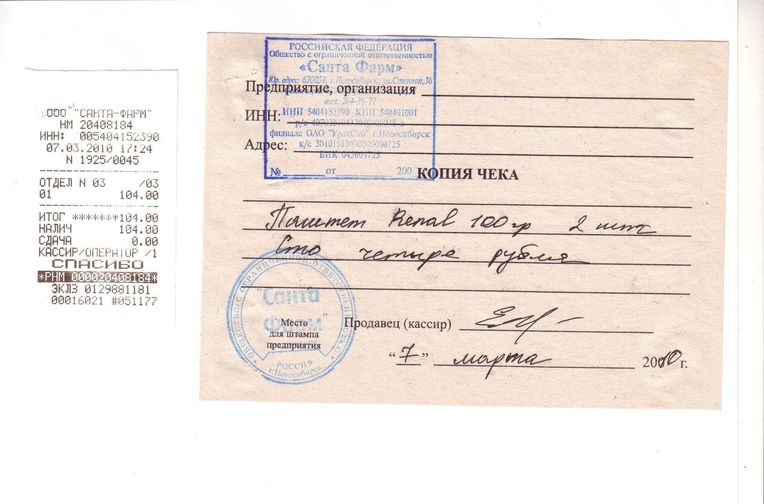 ООО "САНТА-ФАРМ"
НМ 20408184
ИНН: 005404152390
07.03.2010 17:24
N 1925/0045
ОТДЕЛ N 03 /03
01 104.00
ИТОГ *******104.00
НАЛИЧ 104.00
СДАЧА 0.00
КАССИР/ОПЕРАТОР /1
СПАСИБО
*РНМ 000020408184*
ЭКЛЗ 0129881181
00016021 #051177
РОССИЙСКАЯ ФЕДЕРАЦИЯ
Общество с ограниченной ответственностью
«Санта Фарм»
Юр. адрес: 630024, г. Новосибирск, ул. Степная, 36
Предприятие, организация
ИНН: ИНН 5404152390 КПП 540401001
филиале ОАО "УралСиб" г.Новосибирск
Адрес: к/с 30101810400000000725
БИК 045004725
№ от 200 КОПИЯ ЧЕКА
Паштет Renal 100 гр 2 шт
Сто четыре рубля
"Санта Фарм"
Место
для штампа
предприятия
РОССИЯ
г.Новосибирск
Продавец (кассир)
"7" марта 2010 г.